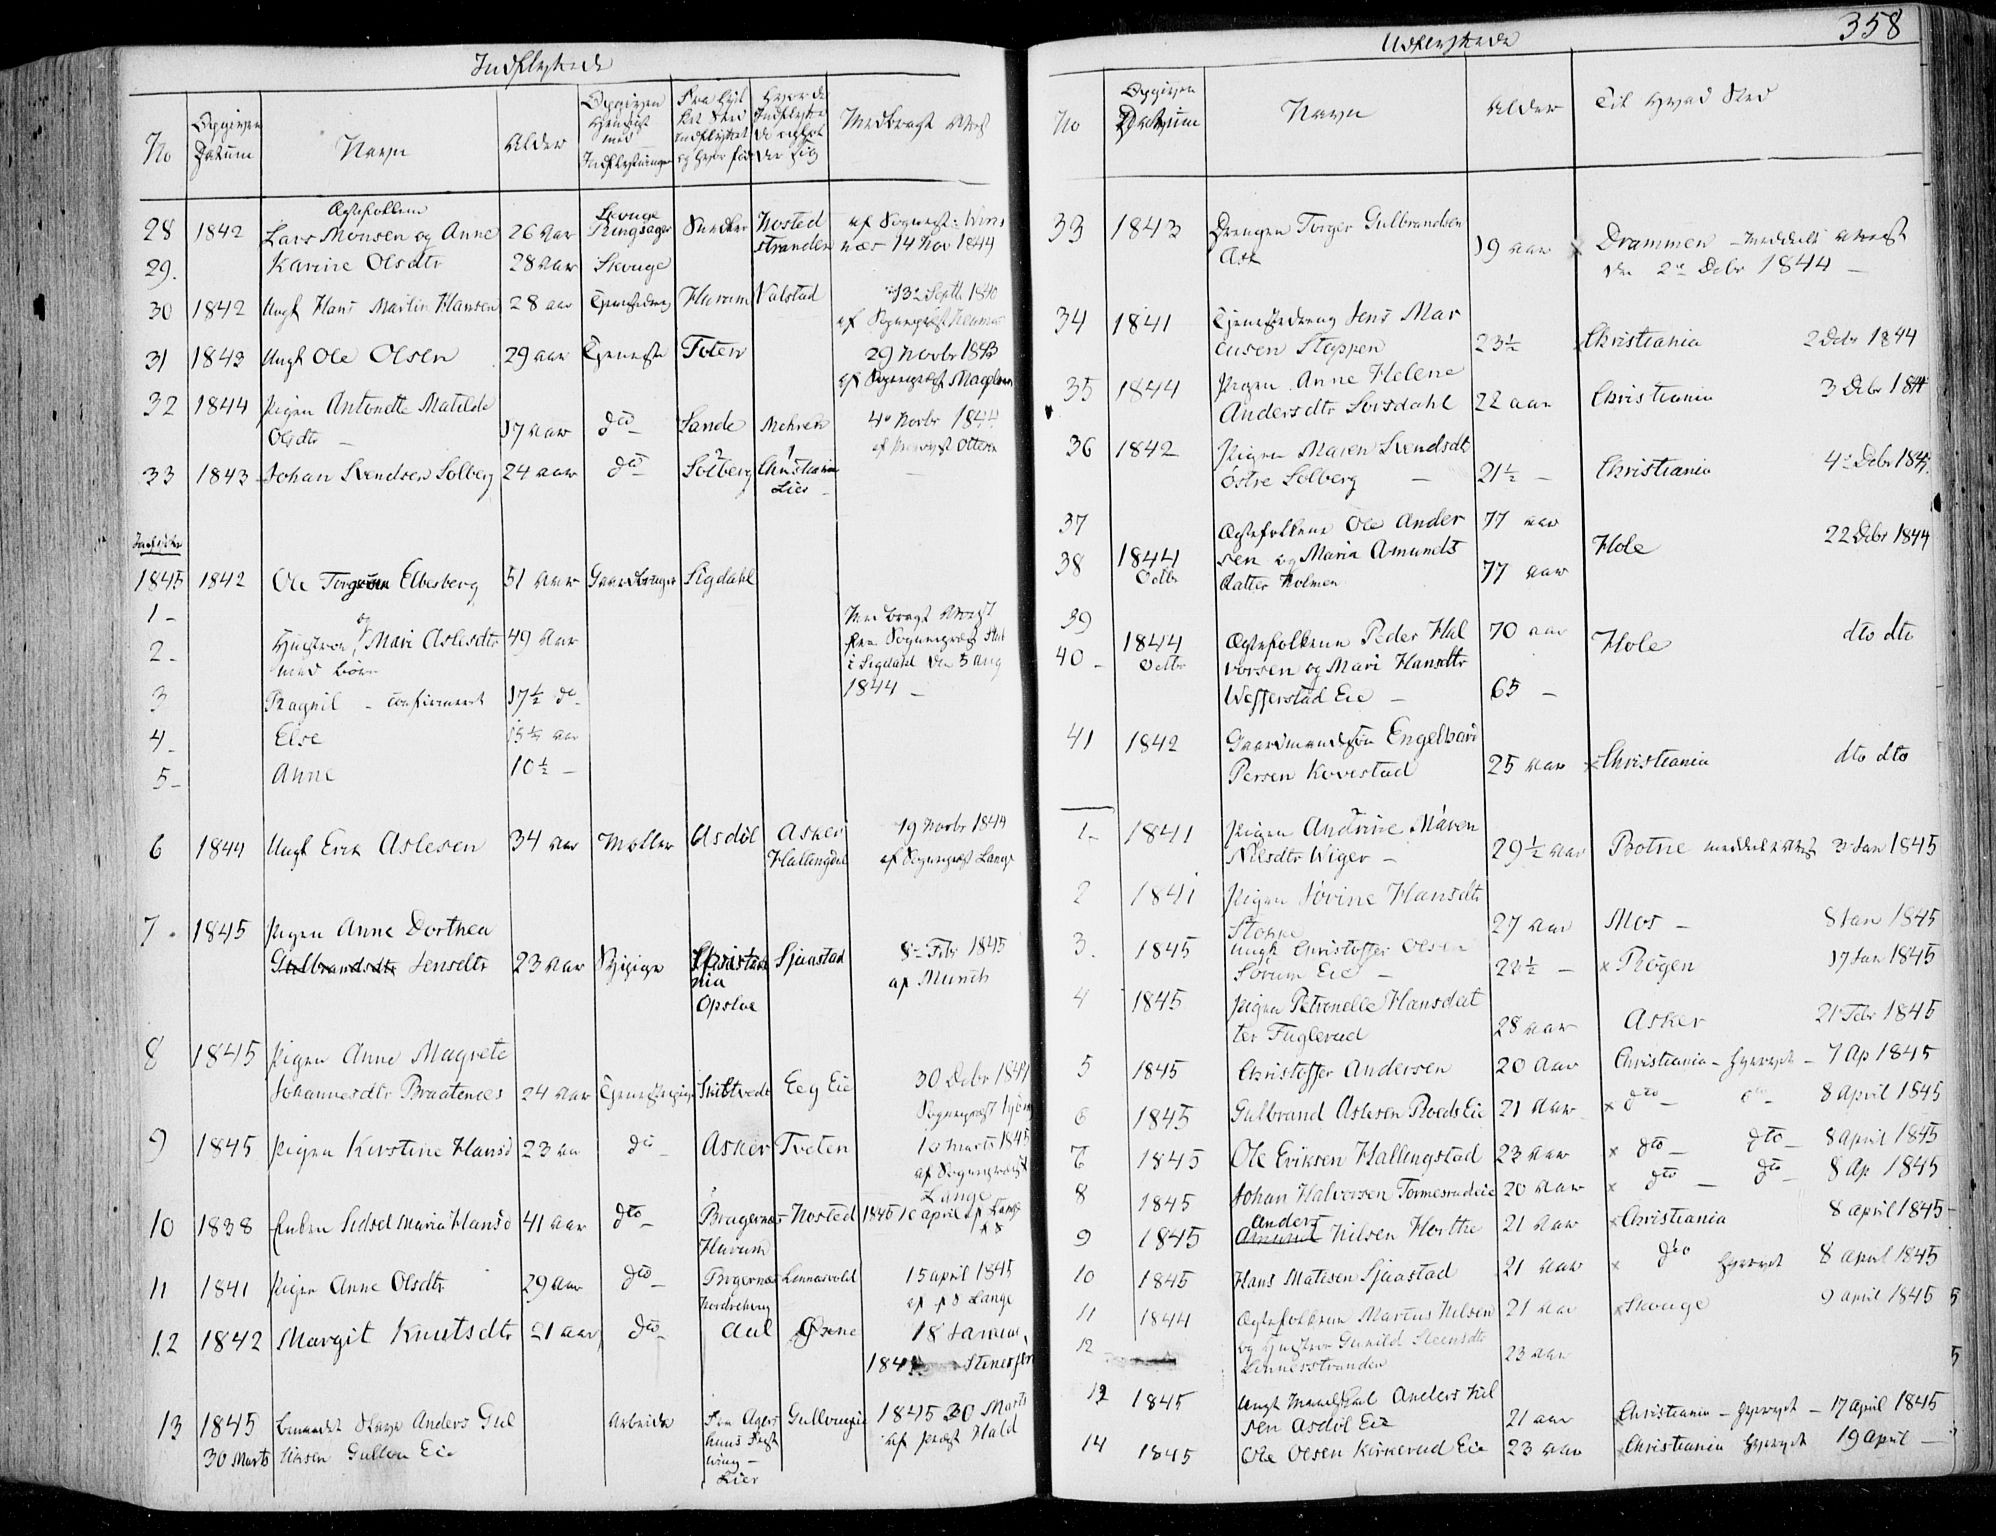 Indflyttede
No
Opgiven Datum
Navn
Alder
Opgiven Hensigt med Indflytningen
Fra hvilket Sted Indflyttet og hvor føde
Hvor de Indflyttede opholder sig
Medbragt Attest
Ægtefolkene
28 1842 Lars Monsen og Anne 26 Aar Skouge Ringsager Nosted stranden af Sognepr: 14 Nov 1844
29. Karine Olsdtr 28 Aar Skouge
30 1842 Ungk Hans Martin Hansen 28 aar Tjenestedreng Hurum Valstad 13de Septb 1840
af Sognepræst
31 1843 Ungk Ole Olsen 29 aar Tjeneste Toten 29 Novbr 1843
af Sognepræst
32 1844 Pigen Antonette Matilde
Olsdtr – 17 Aar dto Sande Mehren 4de Novbr 1844
af Provst Ottesen
33 1843 Johan Svendsen Solberg 24 aar dto Solberg Christiania
Lier –
1845 1842 Ole Elbesberg 51 Aar Gaardbruger Sigdahl
1 -
2 - Hustroe og Mari Aslesdtr 49 Aar
med børn
Medbragt Attest
fra Sognepræst
i Sigdahl den 5 Aug
1844 –
3 Ragnil – confirmeret 17½ do
4 - Else 15½ aar
5 - Anne 10½ –
6 1844 Ungk Erik Aslesen 34 Aar Møller Asdøl Asker
Hallingdal 19 Novbr 1844
af Sognepræst Lange
7 - 1845 Pigen Anne Dorthea
Gulbrandsdtr Jensdtr 23 Aar Sypige Christiania
Opsloe Sjaastad 8de Febr 1845
af Munch
8 1845 Pigen Anne Magrete
Johannesdtr Braatenes 24 Aar Tjenestepige Skiltvedt Eeg Eie 30 Debr 1844
Sognepræst
9 1845 Pigen Kirstine Hansd 23 aa dto Asker Tveten 10 Marts 1845
af Sognepræst
Lange
10 1838 Enken Sidsel Maria Hansd 41 aar dto Bragernes Nosted 1845 10 april af Lange
Hurum
11 1841 Pigen Anne Olsdtr 29 Aar dto Bragernes Linnesvold 15 april 1845
Nordrehoug af Lange
12 1842 Margit Knutsdtr 21 aar dto Aal Øxene 18 Januar
184 Stenersen
13 1845 Anders Gul Arbeide Fra Agers
huus Fæst
ning –
Lier Gulloug eie 1845 30 Marts
af præst Hald
30 Marts liksen Gullou Eie
Udflyttede 358
No
Opgiven Datum
Navn
Alder
Til hvad Sted
33 1843 Drengen Torger Gulbrandsen
Ask 19 aar x Drammen – meddelt Attest
den 2de Debr 1844 –
34 1841 Tjenestedreng Jens Mar
cusen Stoppen 23½ x Christiania 2 Debr 1844
35 1844 Pigen Anne Helene
Andersdtr Sørsdahl 22 aar Christiania 3 Debr 1844
36 1842 Pigen Maren Svendsdtr
østre Solberg – 21½ – Christiania 4de Debr 1844
37 Ægtefolkene Ole Ander 77 aar
38 1844 Octbr sen og Maria Amunds
datter Holmen 77 aar Hole 22 Debr 1844
39
40 - 1844 Octbr Ægtefolkene Peder Hal 70 aar Hole dto dto
vorsen og Mari Hansdtr
Wefferstad Eie – 65 –
41 1842 Gaardmandssøn Engelbart
Persen Kovestad 25 Aar x Christiania dto dto
1 - 1841 Pigen Andrine Maren
Nilsdtr Wiger – 29½ Aar Botne meddelt Attest 3 Jan 1845
2 1841 Pigen Jørine Hansdtr
Stoppe 27 Aar Mos – 8 Jan 1845
3. 1845 Ungk Christoffer Olsen
Sørum Eie – 22½ – x Røgen 17 Jan 1845
4 1845 Pigen Petronelle Hansdat
ter Fuglerud 28 Aar Asker 21 Febr 1845
5 1845 Christoffer Andersen 20 Aar Christiania – – 7 Ap 1845
6 1845 Gulbrand Aslesen Roeds Eie 21 Aar x dto – dto – 8 April 1845
7 1845 Ole Eriksen Hallingstad 23 Aar x dto – dto – 8 april 1845
8 1845 Johan Halvorsen Tømesrudeie 20 Aar x dto – dto – 8 Ap 1845
Anders
9 1845 Amund Nilsen Horthe 21 Aar x Christiania 8 april 1845 –
10 1845 Hans Matisen Sjaastad 21 Aar x dto 8 april 1845
11 1844 Ægtefolkene Marcus Nilsen 21 Aar x Skouge 9 april 1845
12 og Hustroe Gunild Steensdtr
Linnesstranden 23 Aar
12 1845 Ungk Anders Nil
sen Asdøl Eie 21 aar x Christiania – – 17 april 1845
14 1845 Ole Olsen Kirkerud Eie 23 Aar x Christiania 19 april –